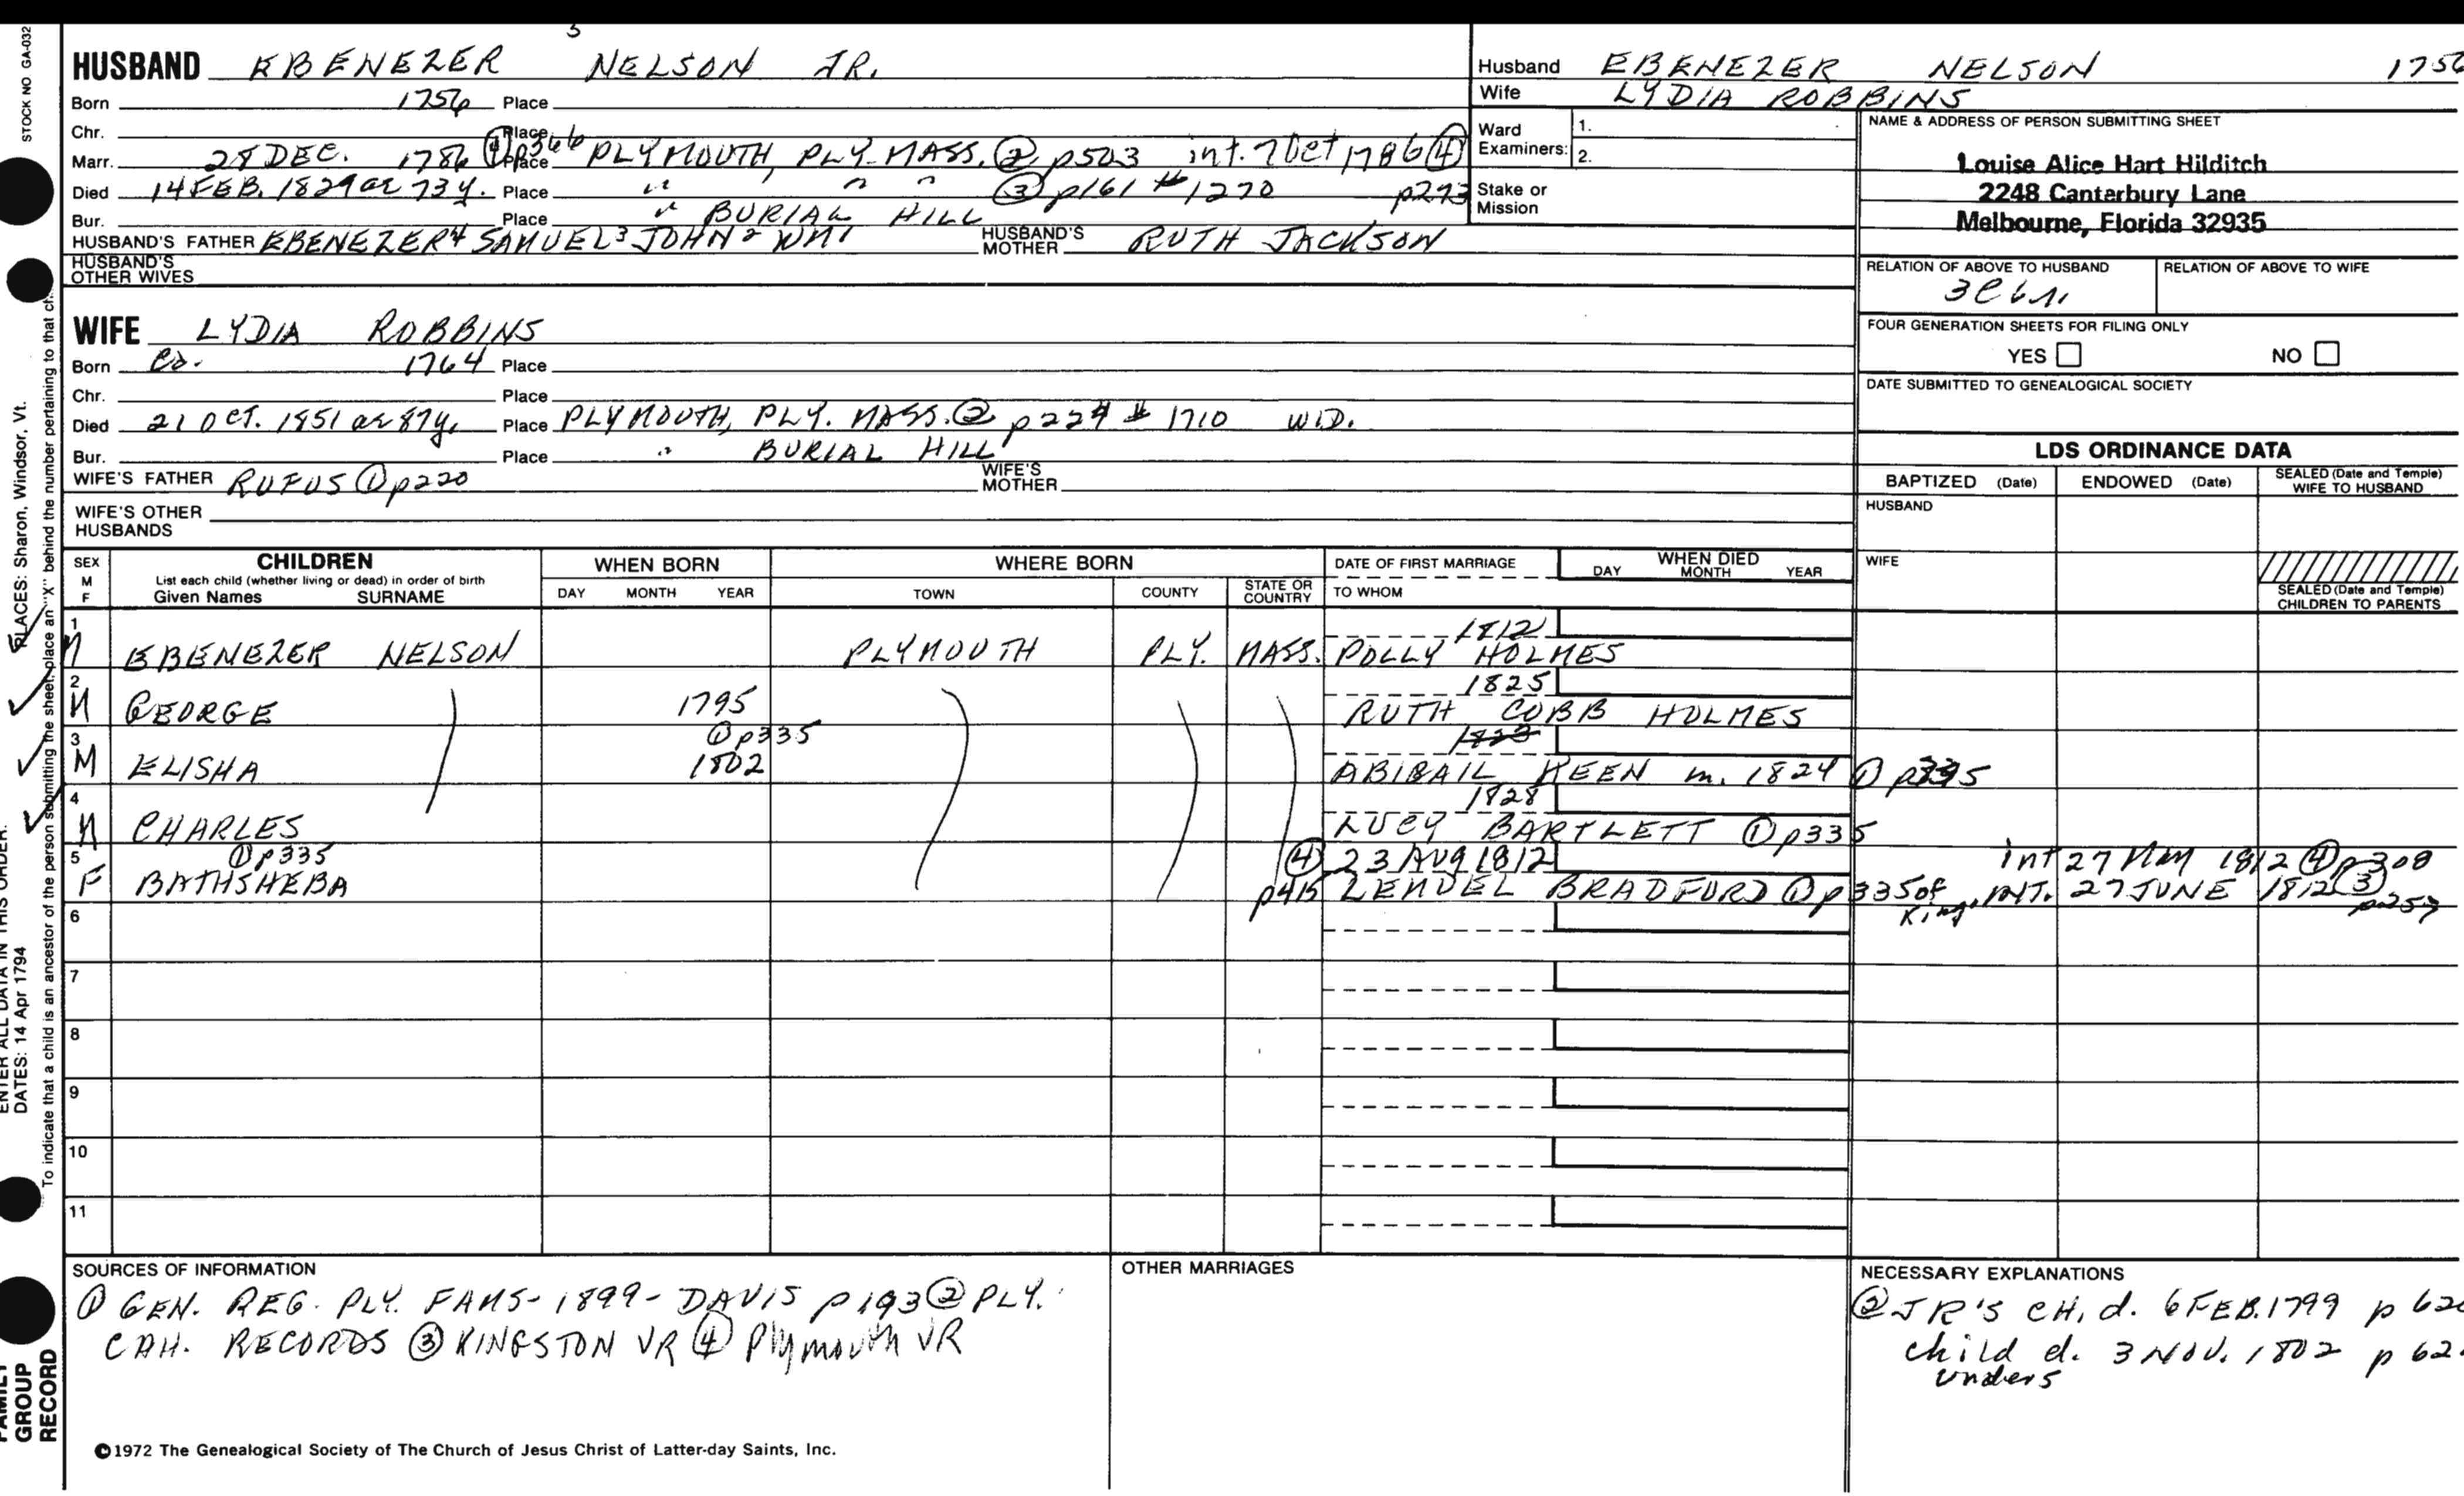 STOCK NO GA-032
5
HUSBAND EBENEZER NELSON JR.
Born 1756 Place
Chr. Place
Marr. 28 DEC. 1786 ④ p366 Place PLYMOUTH, PLY. MASS. ② p503 int. 7 Oct 1786 ④ p273
Died 14 FEB. 1829 ae 73y. Place " " " ③ p161 # 1270
Bur. Place " BURIAL HILL
HUSBAND'S FATHER EBENEZER⁴ SAMUEL³ JOHN² WM¹ HUSBAND'S MOTHER RUTH JACKSON
HUSBAND'S OTHER WIVES
WIFE LYDIA ROBBINS
Born Ca. 1764 Place
Chr. Place
Died 21 OCT. 1851 ae 87y. Place PLYMOUTH, PLY. MASS. ② p224 # 1710 WID.
Bur. Place " BURIAL HILL
WIFE'S FATHER RUFUS ① p220 WIFE'S MOTHER
WIFE'S OTHER HUSBANDS
Husband EBENEZER NELSON 1756
Wife LYDIA ROBBINS
Ward Examiners: 1.
2.
Stake or Mission
NAME & ADDRESS OF PERSON SUBMITTING SHEET
Louise Alice Hart Hilditch
2248 Canterbury Lane
Melbourne, Florida 32935
RELATION OF ABOVE TO HUSBAND RELATION OF ABOVE TO WIFE
3C6r.
FOUR GENERATION SHEETS FOR FILING ONLY
YES NO
DATE SUBMITTED TO GENEALOGICAL SOCIETY
LDS ORDINANCE DATA
BAPTIZED (Date) ENDOWED (Date) SEALED (Date and Temple) WIFE TO HUSBAND
HUSBAND
WIFE
SEALED (Date and Temple) CHILDREN TO PARENTS
SEX M F CHILDREN
List each child (whether living or dead) in order of birth
Given Names SURNAME
WHEN BORN
DAY MONTH YEAR
WHERE BORN
TOWN COUNTY STATE OR COUNTRY
DATE OF FIRST MARRIAGE
TO WHOM
WHEN DIED
DAY MONTH YEAR
1 1812
M EBENEZER NELSON PLYMOUTH PLY. MASS. POLLY HOLMES
2 1825
M GEORGE 1795 RUTH COBB HOLMES
3 ① p335 1823
M ELISHA 1802 ABIGAIL KEEN m. 1824 ① p335
4 1828
M CHARLES LUCY BARTLETT ① p335
5 ① p335 ④ 23 AUG 1812 int 27 May 1812 ④ p308
F BATHSHEBA p415 LEMUEL BRADFORD ① p335 of King. INT. 27 JUNE 1812 ③ p257
6
7
8
9
10
11
SOURCES OF INFORMATION
① GEN. REG. PLY. FAMS - 1899 - DAVIS p193 ② PLY.
CAH. RECORDS ③ KINGSTON VR ④ Plymouth VR
OTHER MARRIAGES
NECESSARY EXPLANATIONS
② JR'S CH, d. 6 FEB. 1799 p 62
child d. 3 NOV. 1802 p 62
under 5
©1972 The Genealogical Society of The Church of Jesus Christ of Latter-day Saints, Inc.
FAMILY GROUP RECORD
ENTER ALL DATA IN THIS ORDER:
DATES: 14 Apr 1794
PLACES: Sharon, Windsor, Vt.
To indicate that a child is an ancestor of the person submitting the sheet, place an "X" behind the number pertaining to that ch.